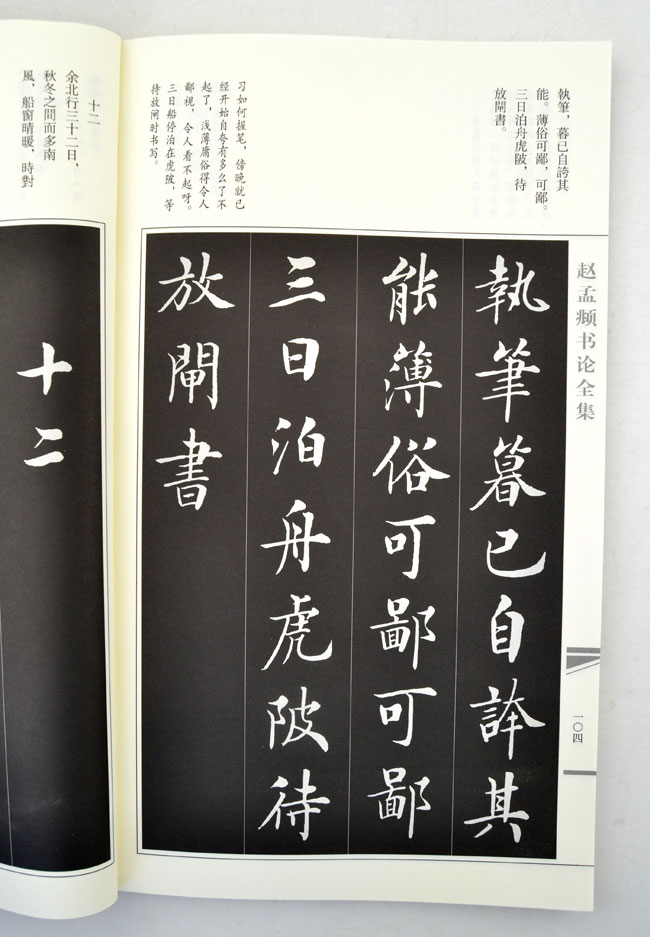 赵孟頫书论全集
一〇四
執筆，暮已自誇其
能。薄俗可鄙，可鄙。
三日泊舟虎陂，待
放閘書。
习如何握笔，傍晚就已
经开始自夸有多么了不
起了，浅薄庸俗得令人
鄙视，令人看不起呀。
三日船停泊在虎陂，等
待放闸时书写。
執筆暮已自誇其
能薄俗可鄙可鄙
三日泊舟虎陂待
放閘書
十二
余北行三十二日，
秋冬之間而多南
風，船窗晴暖，時對
十二